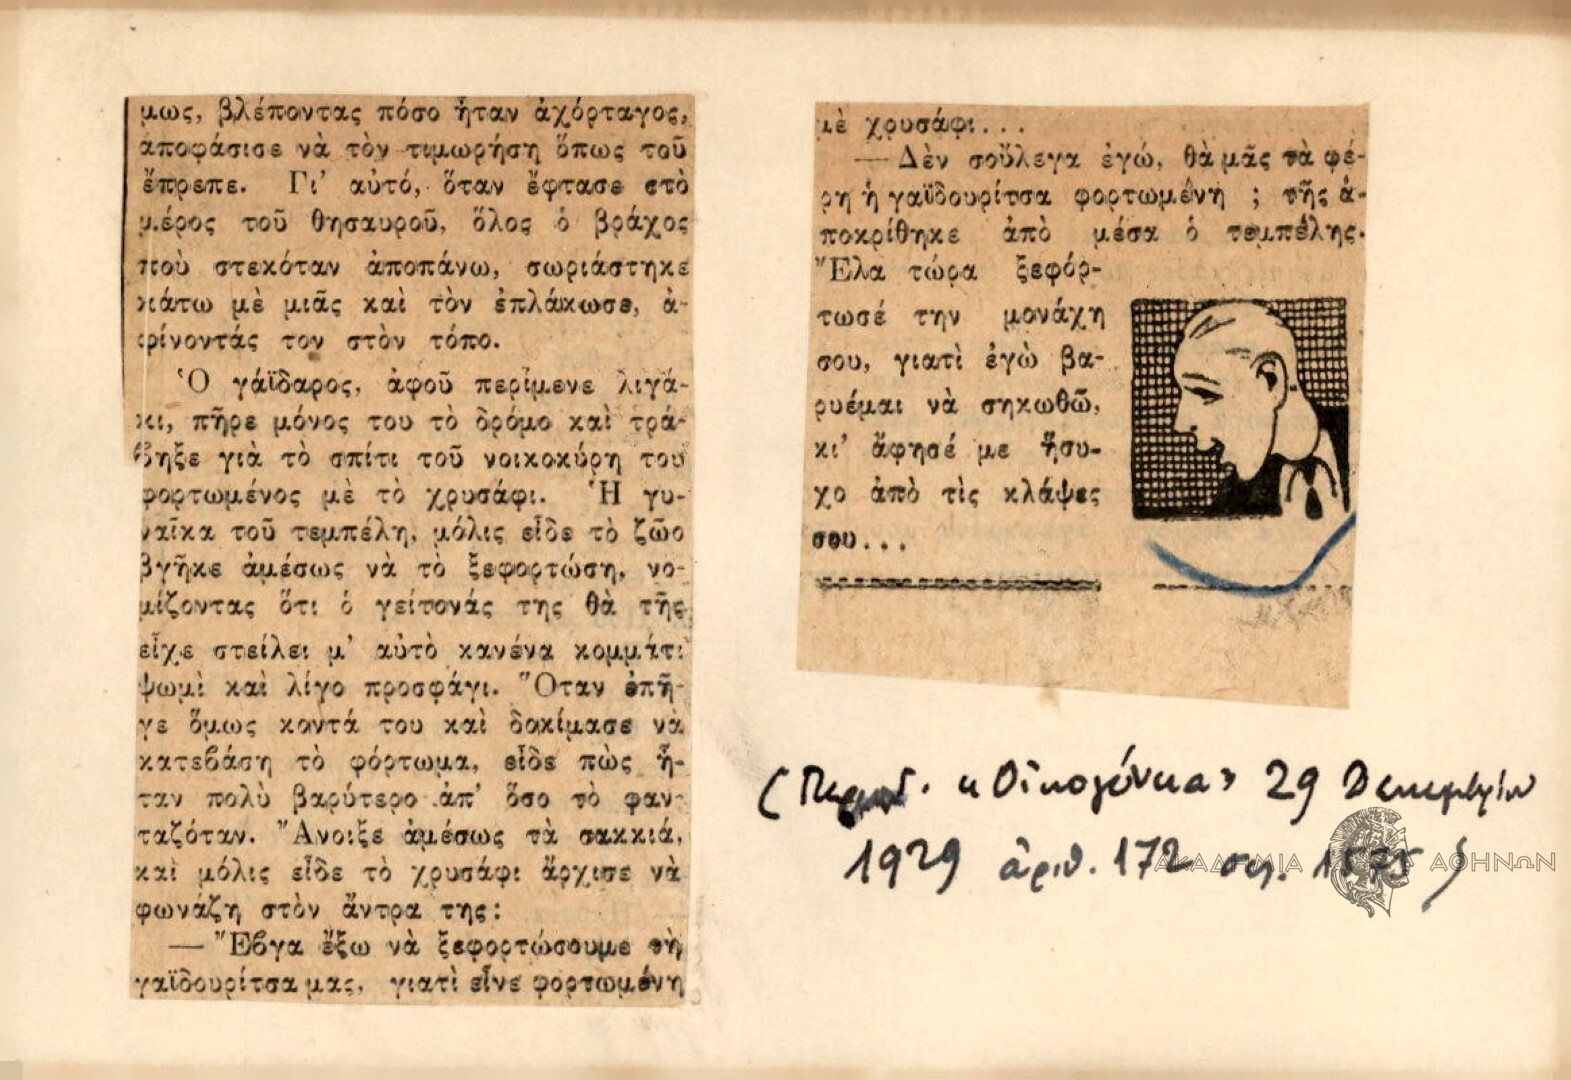 μως, βλέποντας πόσο ἦταν ἀχόρταγος,
ἀποφάσισε νὰ τὸν τιμωρήση ὅπως τοῦ
ἔπρεπε. Γι' αὐτό, ὅταν ἔφτασε στὸ
μέρος τοῦ θησαυροῦ, ὅλος ὁ βράχος
ποὺ στεκόταν ἀποπάνω, σωριάστηκε
κάτω μὲ μιᾶς καὶ τὸν ἐπλάκωσε, ἀ-
φίνοντάς τον στὸν τόπο.
Ὁ γάϊδαρος, ἀφοῦ περίμενε λιγά-
κι, πῆρε μόνος του τὸ δρόμο καὶ τρά-
βηξε γιὰ τὸ σπίτι τοῦ νοικοκύρη του
φορτωμένος μὲ τὸ χρυσάφι. Ἡ γυ-
ναῖκα τοῦ τεμπέλη, μόλις εἶδε τὸ ζῶο
βγῆκε ἀμέσως νὰ τὸ ξεφορτώση, νο-
μίζοντας ὅτι ὁ γείτονάς της θὰ τῆς
εἶχε στείλει μ' αὐτὸ κανένα κομμάτι
ψωμὶ καὶ λίγο προσφάγι. Ὅταν ἐπῆ-
γε ὅμως κοντά του καὶ δοκίμασε νὰ
κατεβάση τὸ φόρτωμα, εἶδε πὼς ἦ-
ταν πολὺ βαρύτερο ἀπ' ὅσο τὸ φαν-
ταζόταν. Ἄνοιξε ἀμέσως τὰ σακκιά,
καὶ μόλις εἶδε τὸ χρυσάφι ἄρχισε νὰ
φωνάζη στὸν ἄντρα της:
— Ἔβγα ἔξω νὰ ξεφορτώσουμε τὴ
γαϊδουρίτσα μας, γιατὶ εἶνε φορτωμένη
μὲ χρυσάφι...
— Δὲν σοὔλεγα ἐγώ, θὰ μᾶς τὰ φέ-
ρη ἡ γαϊδουρίτσα φορτωμένη ; τῆς ἀ-
ποκρίθηκε ἀπὸ μέσα ὁ τεμπέλης.
Ἔλα τώρα ξεφόρ-
τωσέ την μονάχη
σου, γιατὶ ἐγὼ βα-
ρυέμαι νὰ σηκωθῶ,
κι' ἄφησέ με ἥσυ-
χο ἀπὸ τὶς κλάψες
σου...
(Περιοδ. «Οἰκογένεια» 29 Δεκεμβρίου
1929 ἀριθ. 172 σελ. 1575)
ΑΚΑΔΗΜΙΑ ΑΘΗΝΩΝ